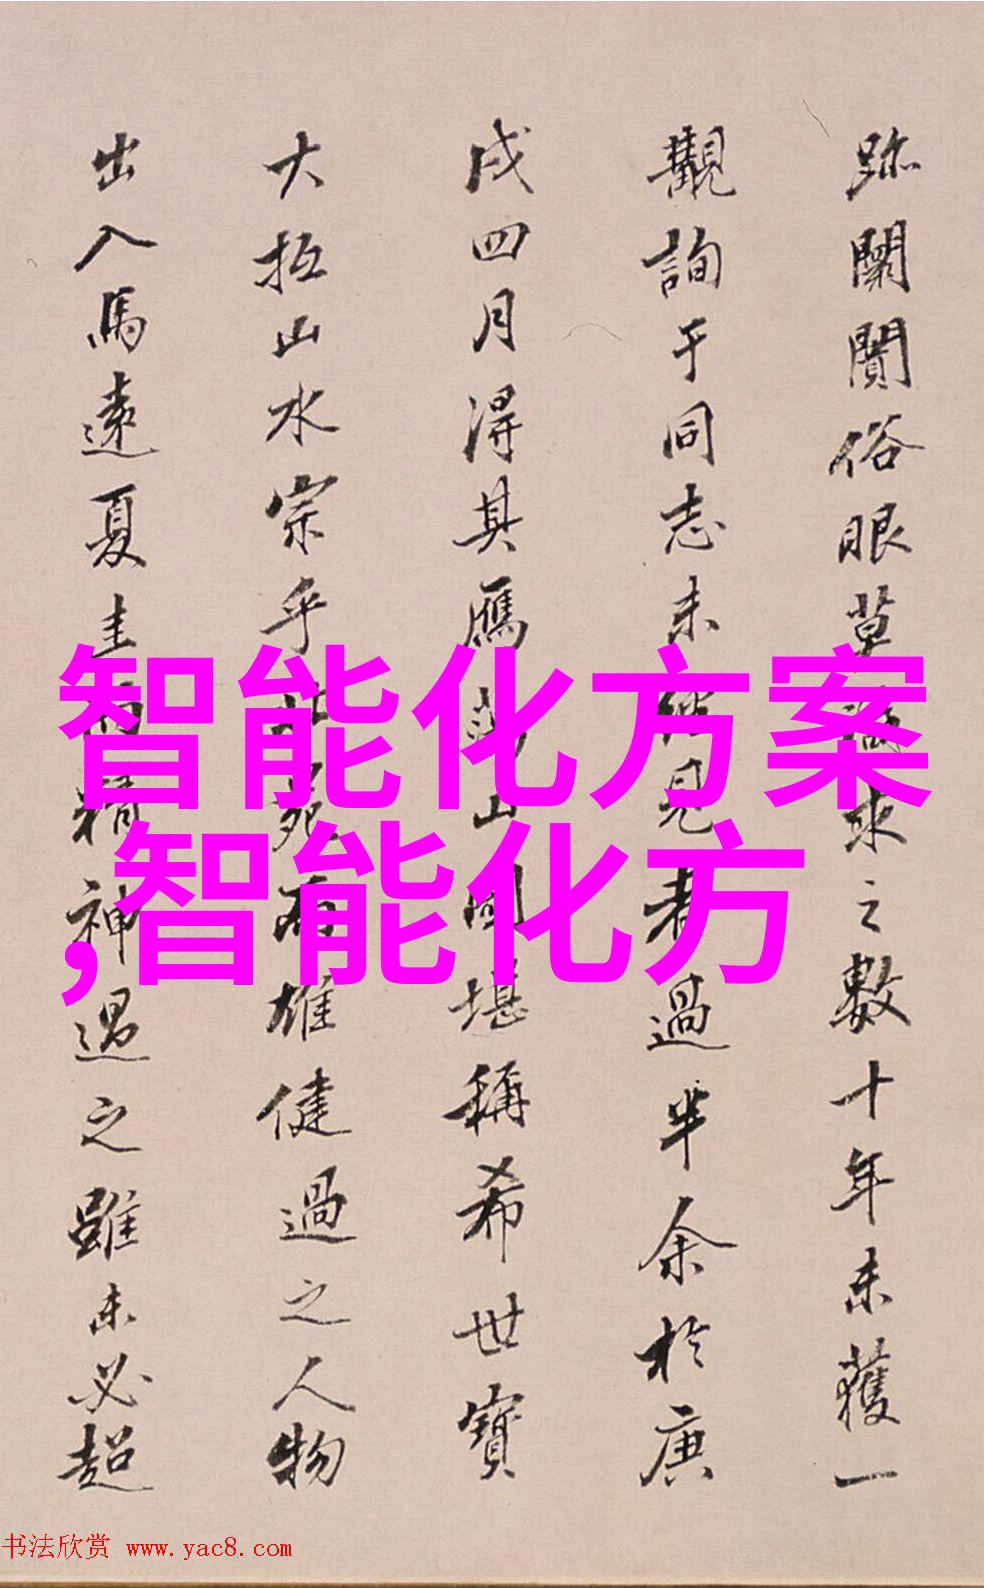 跡闤闠俗眼草識求之數十年未獲一
觀詢于同志未經見者過半余於庚
戌四月得其鴈蕩山圖堪稱希世寶
大抵山水宗乎北苑而雄健過之人物
出入馬遠夏圭而精神過之雖未必超
智能化方案
,智能化方
书法欣赏 www.yac8.com